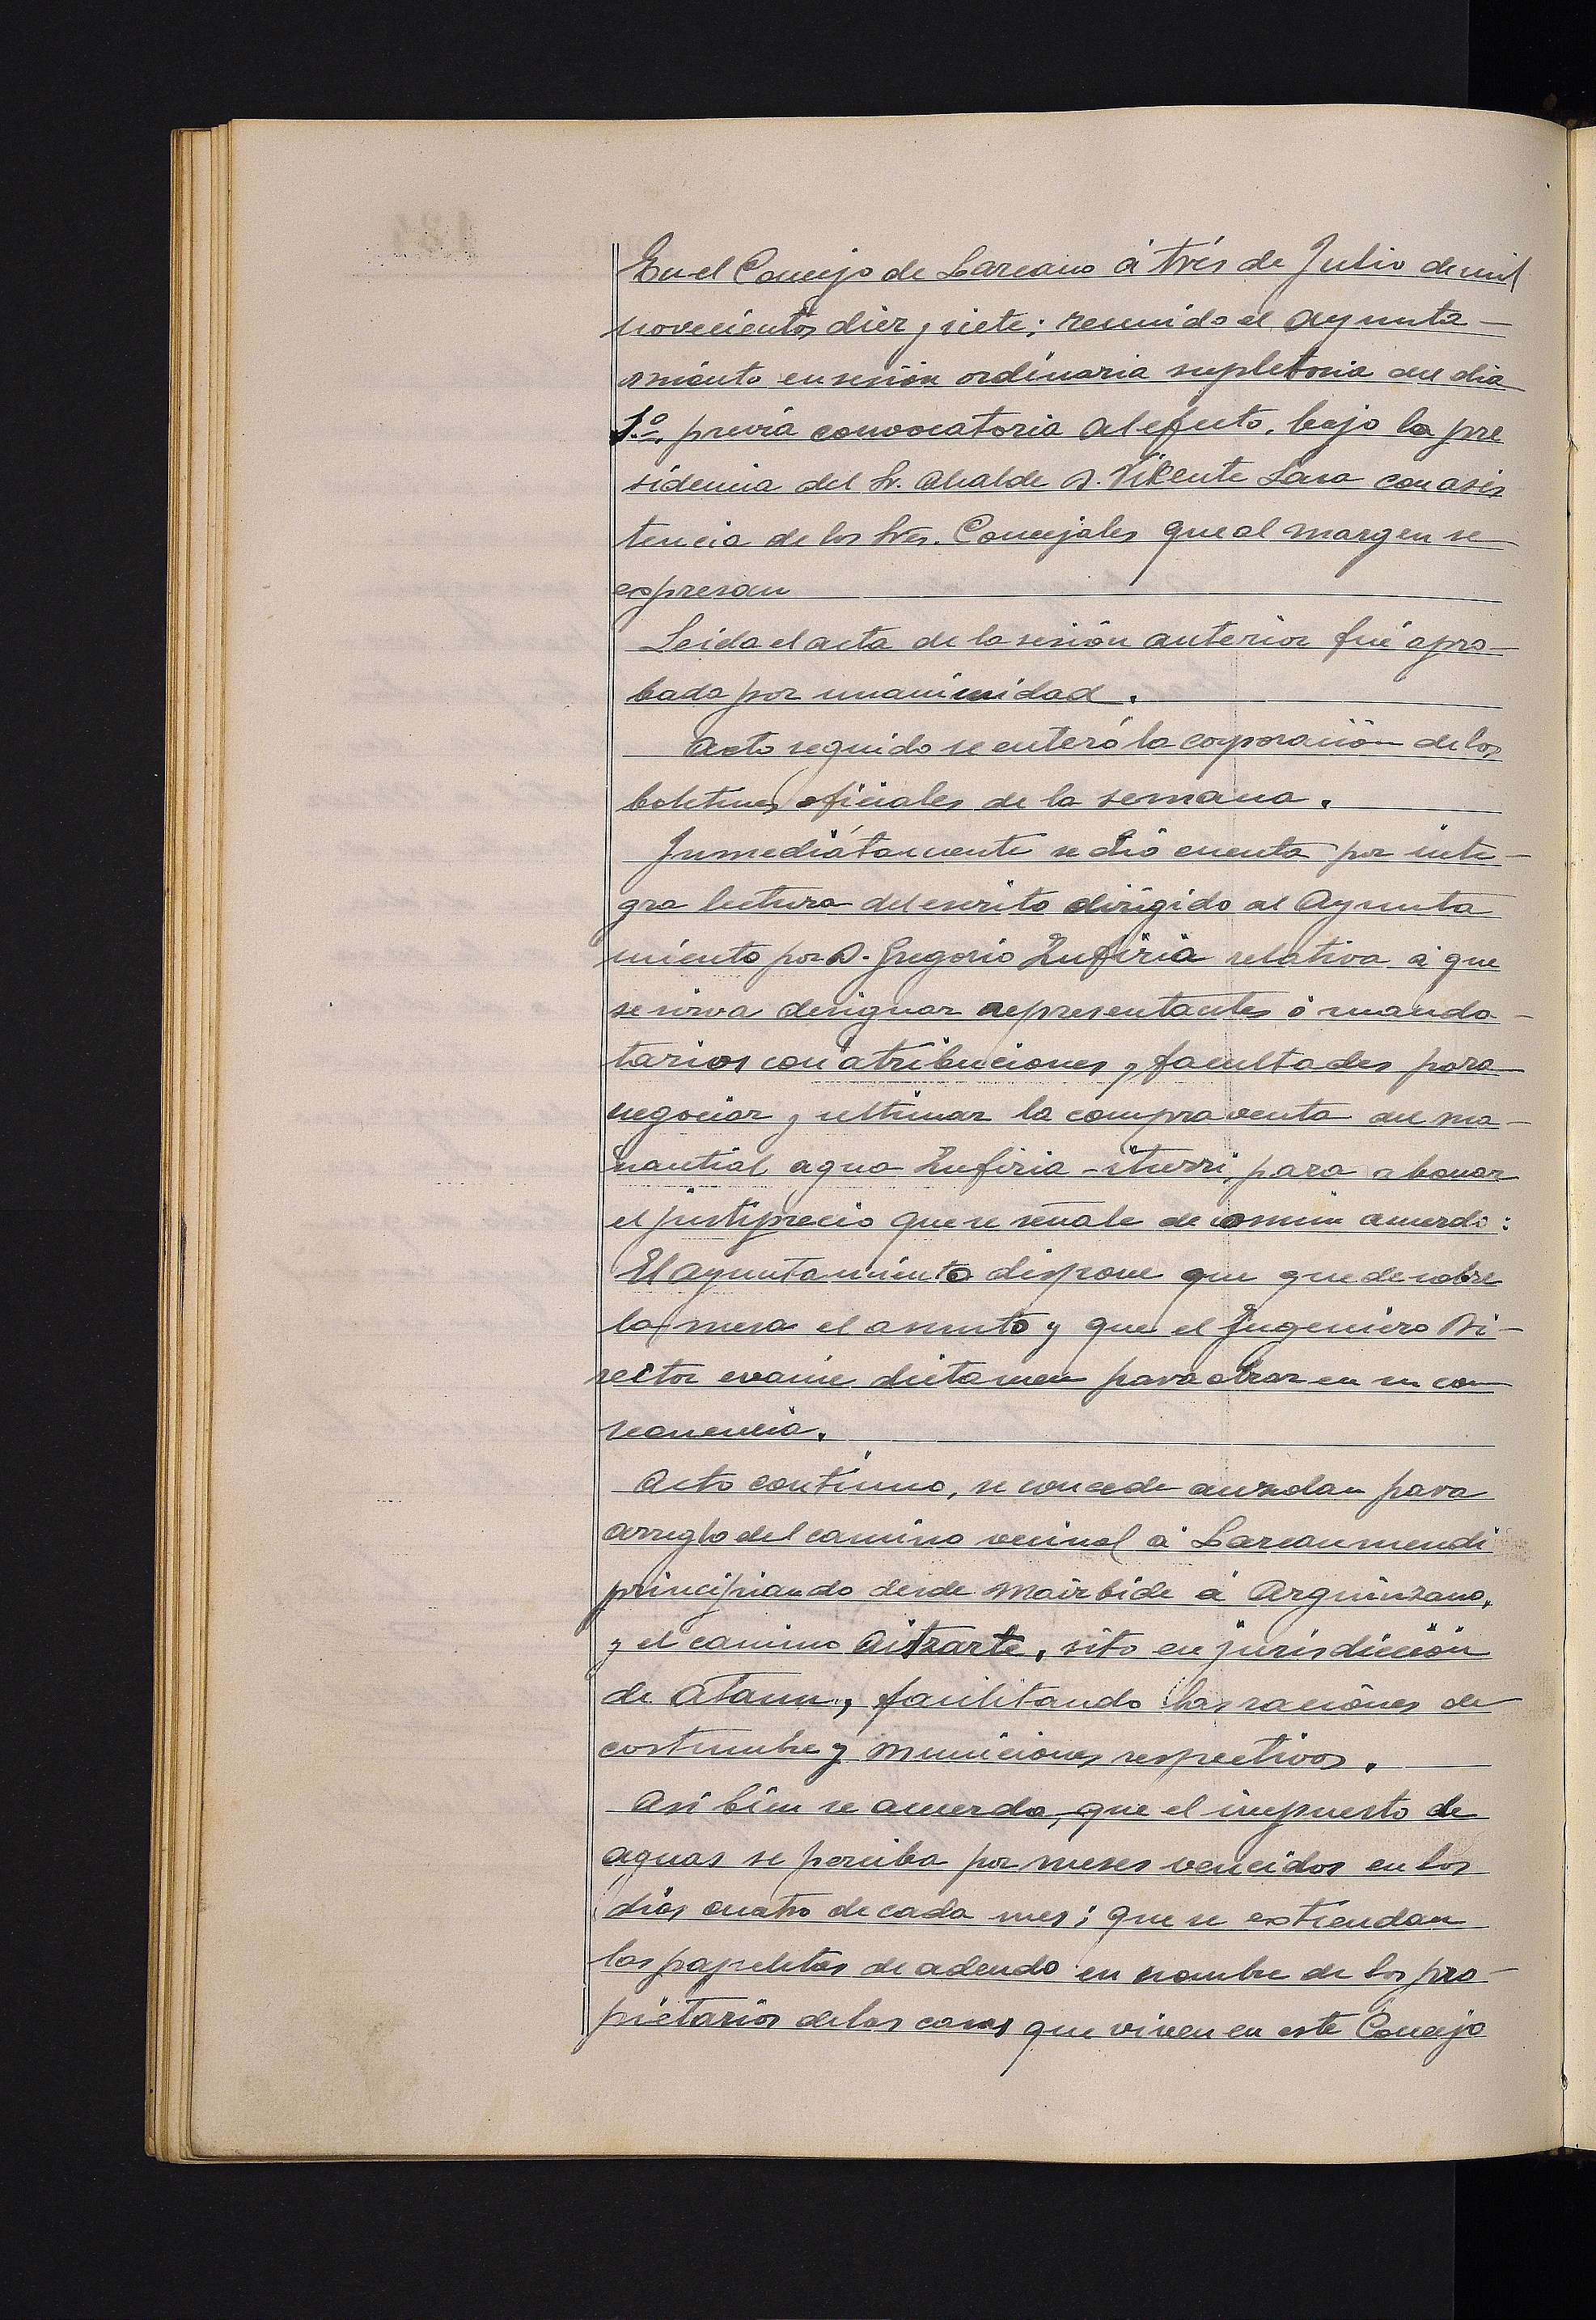 En el Concejo de Lazcano á trés de Julio de mil
novecientos diez y siete; reunido el Ayunta-
miento en sesión ordinaria supletoria del dia
1.º, previa convocatoria al efecto, bajo la pre
sidencia del Sr. Alcalde D. Vicente Lasa con asis
tencia de los Sres. Concejales que al margen se
expresan
Leida el acta de la sesión anterior fué apro-
bada por unanimidad.
Acto seguido se enteró la corporación de los
boletines oficiales de la semana.
Inmediátamente se dió cuenta por inte-
gra lectura del escrito dirigido al Ayunta
miento por D. Gregorio Zufiria relativa á que
se sirva designar representantes ó manda-
tarios con atribuciones y facultades para
negociar y ultimar la compraventa del ma-
nantial agua Zufiria-iturri, para abonar
el justiprecio que se señale de común acuerdo:
El ayuntamiento dispone que quede sobre
la mesa el asunto y que el Ingeniero Di-
rector evacúe dictamen para obrar en su con
secuencia.
Acto continuo, se concede auzolan para
arreglo del camino vecinal á Lazcaumendi
principiando desde Mairbide á Arguinzano,
y el camino Aitzarte, sito en jurisdicción
de Ataun, facilitando las raciones de
costumbre y municiones respectivas.
Asi bien se acuerda, que el impuesto de
aguas se perciba por meses vencidos en los
dias cuatro de cada mes; que se extiendan
las papeletas de adeudo en nombre de los pro-
pietarios de las casas que viven en este Concejo